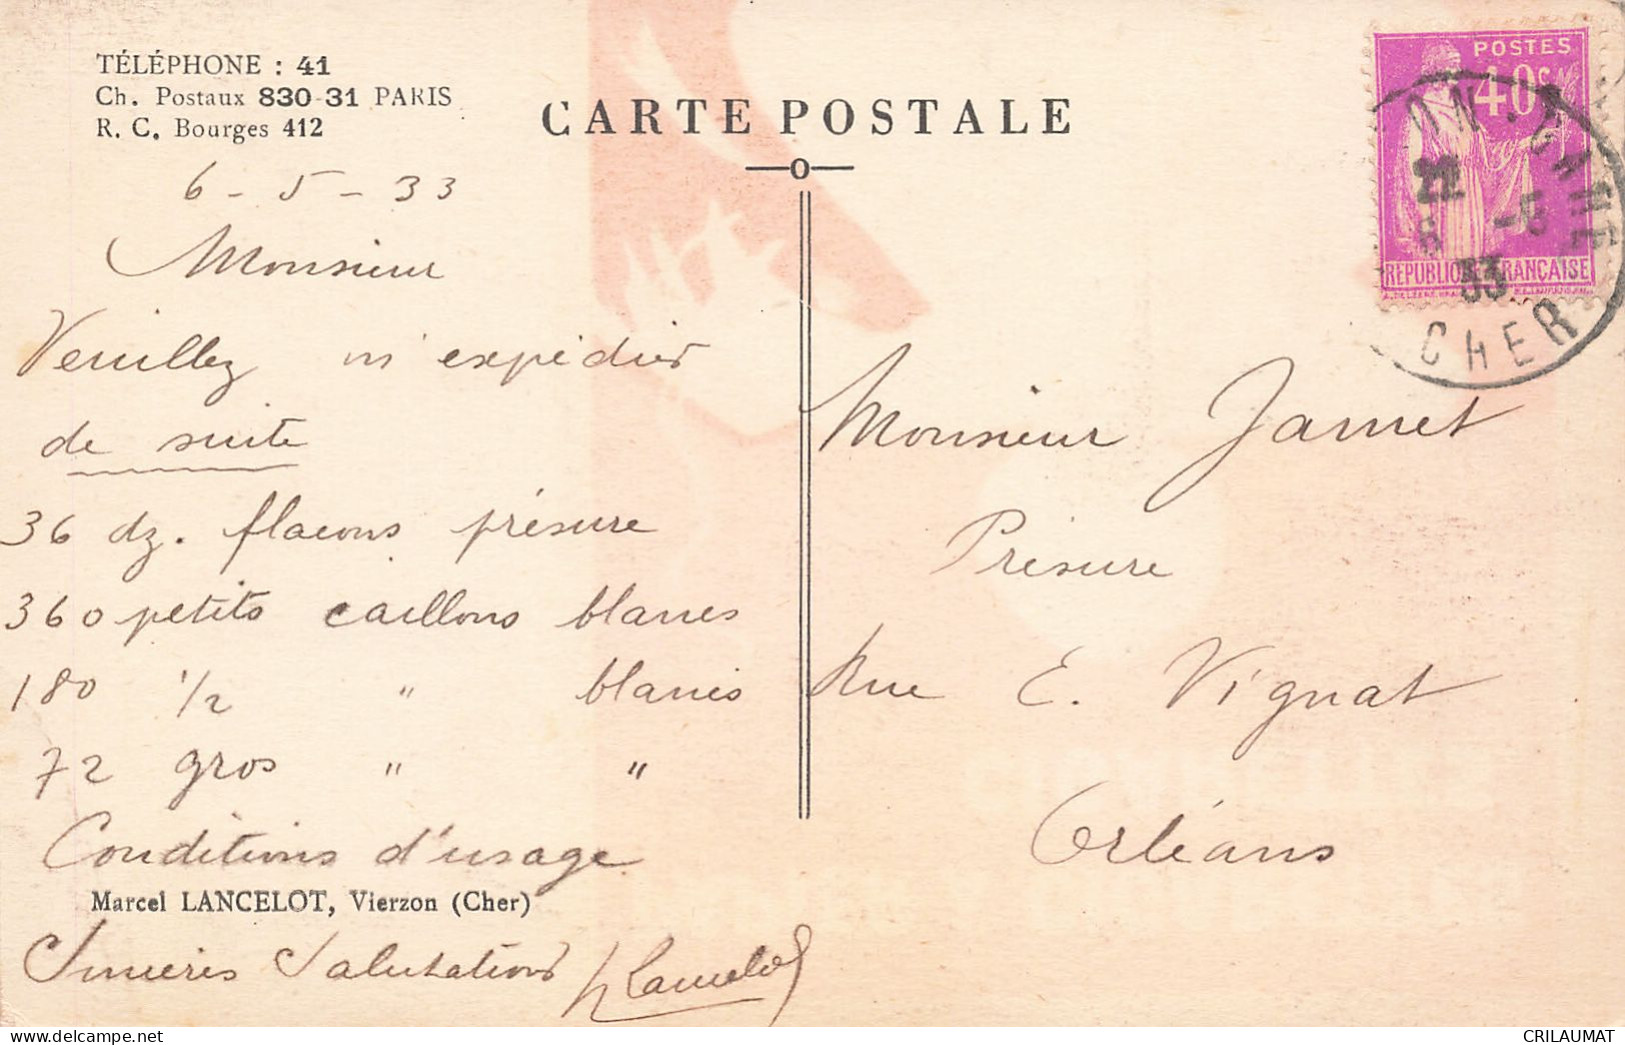 TÉLÉPHONE : 41
Ch. Postaux 830-31 PARIS
R. C. Bourges 412
CARTE POSTALE
6 - 5 - 33
Monsieur
Veuillez m'expédier
de suite
36 dz. flacons présure
360 petits caillons blancs
180 1/2 " blancs
72 gros " "
Conditions d'usage
Marcel LANCELOT, Vierzon (Cher)
Sincères Salutations
Lancelot
POSTES
40c
RÉPUBLIQUE FRANÇAISE
33
CHER
Monsieur Jamet
Présure
Rue E. Vignat
Orléans
CRILAUMAT